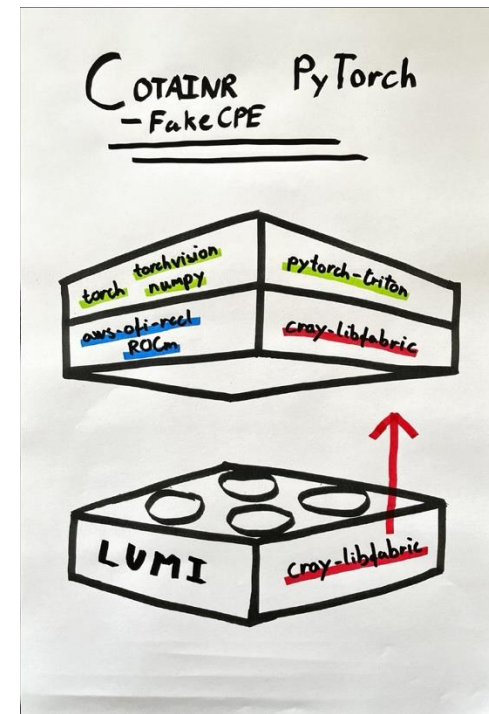 COTAINR PyTorch
- FakeCPE
torch torchvision numpy
pytorch-triton
aws-ofi-rccl
ROCm
cray-libfabric
LUMI
cray-libfabric